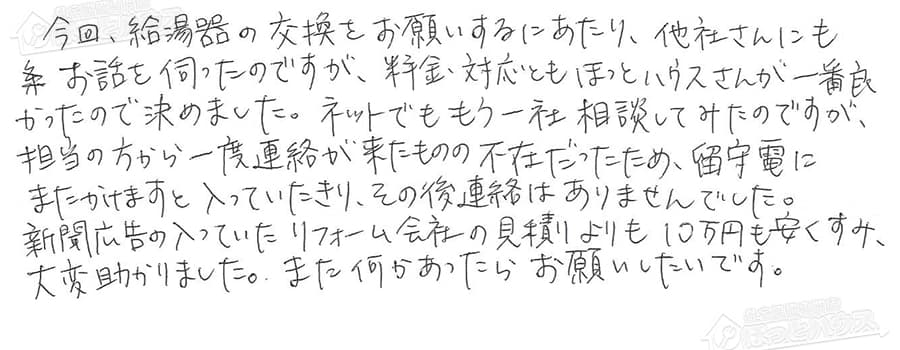 今回、給湯器の交換をお願いするにあたり、他社さんにも
お話を伺ったのですが、料金・対応ともほっとハウスさんが一番良
かったので決めました。ネットでももう一社相談してみたのですが、
担当の方から一度連絡が来たものの不在だったため、留守電に
またかけますと入っていたきり、その後連絡はありませんでした。
新聞広告の入っていたリフォーム会社の見積りよりも10万円も安くすみ、
大変助かりました。また何かあったらお願いしたいです。
ほっとハウス